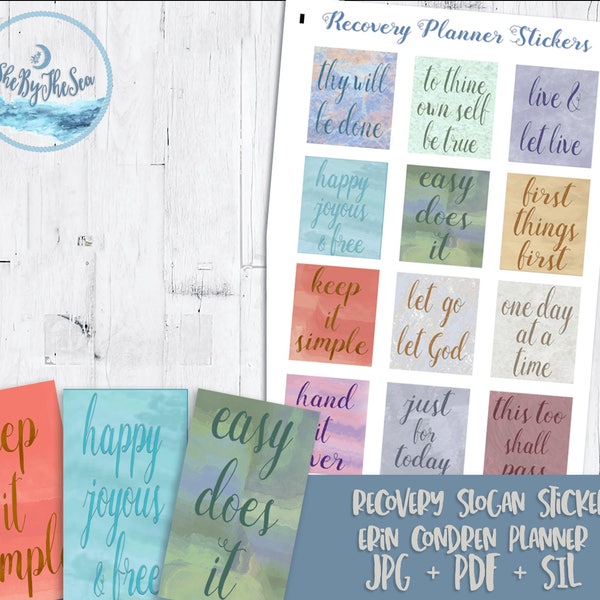 SheByTheSea
Recovery Planner Stickers
thy will
be done
to thine
own self
be true
live &
let live
happy
joyous
& free
easy
does
it
first
things
first
keep
it
simple
let go
let God
one day
at a
time
hand
it
over
just
for
today
this too
shall
pass
keep
it
simple
happy
joyous
& free
easy
does
it
RECOVERY SLOGAN STICKE
ERIN CONDREN PLANNER
JPG + PDF + SIL